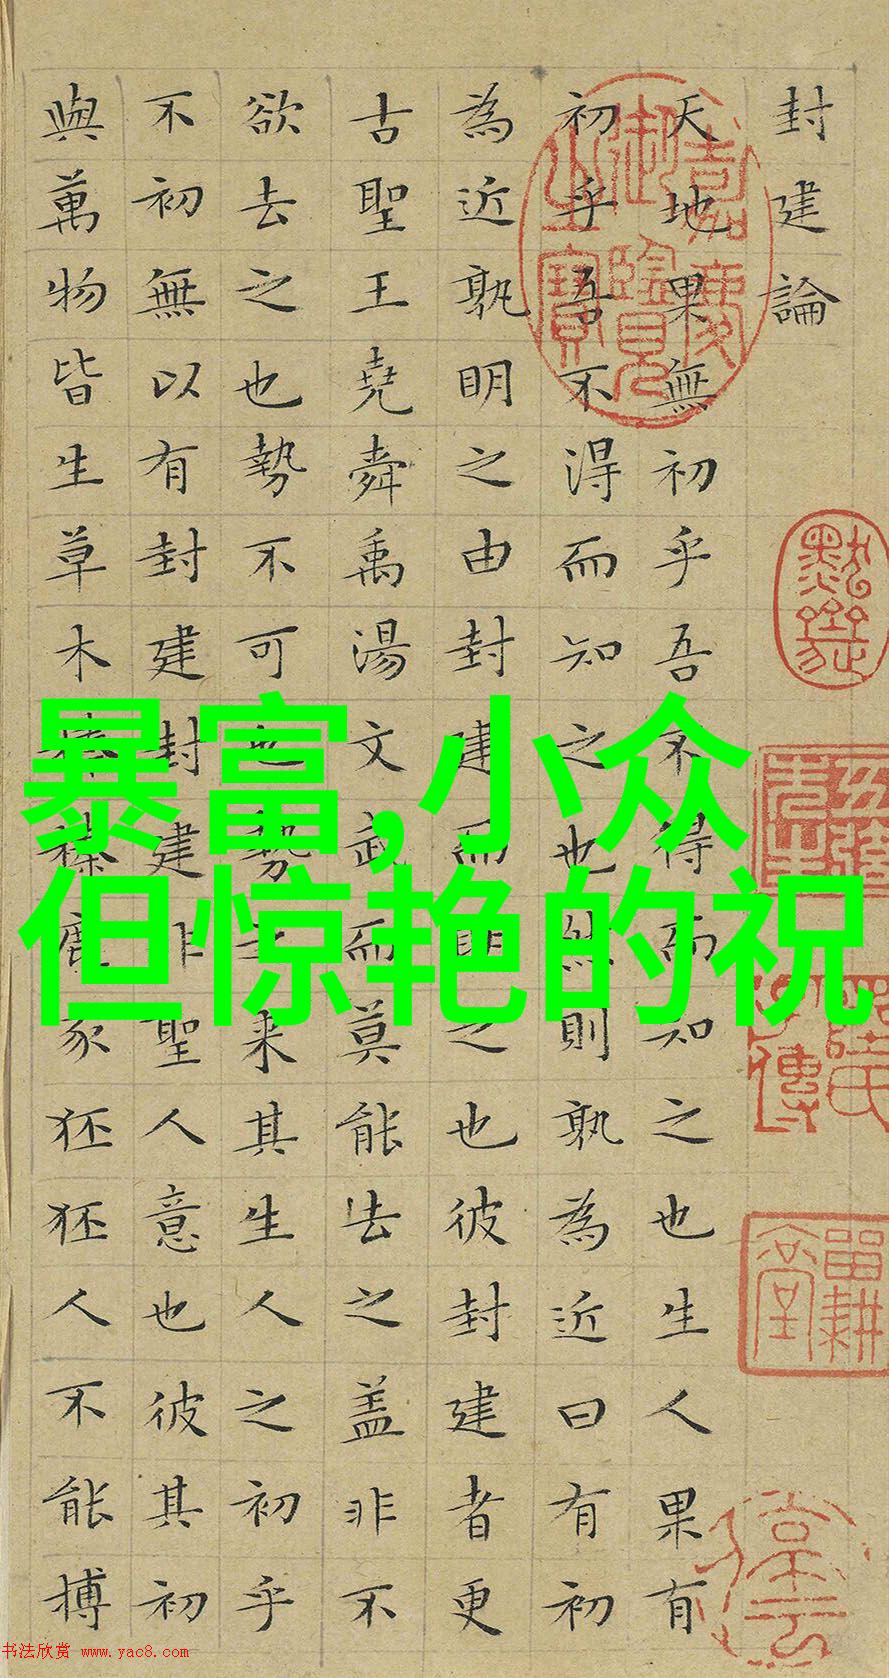 封建論
天地果無初乎吾不得而知之也生人果有
初乎吾不得而知之也然則孰為近曰有初
為近孰明之由封建而明之也彼封建者更
古聖王堯舜禹湯文武而莫能去之蓋非不
欲去之也勢不可也勢之來其生人之初乎
不初無以有封建封建非聖人意也彼其初
與萬物皆生草木榛榛鹿豕狉狉人不能搏
嘉慶御覽之寶
暴富,小众
但惊艳的祝
书法欣赏 www.yac8.com